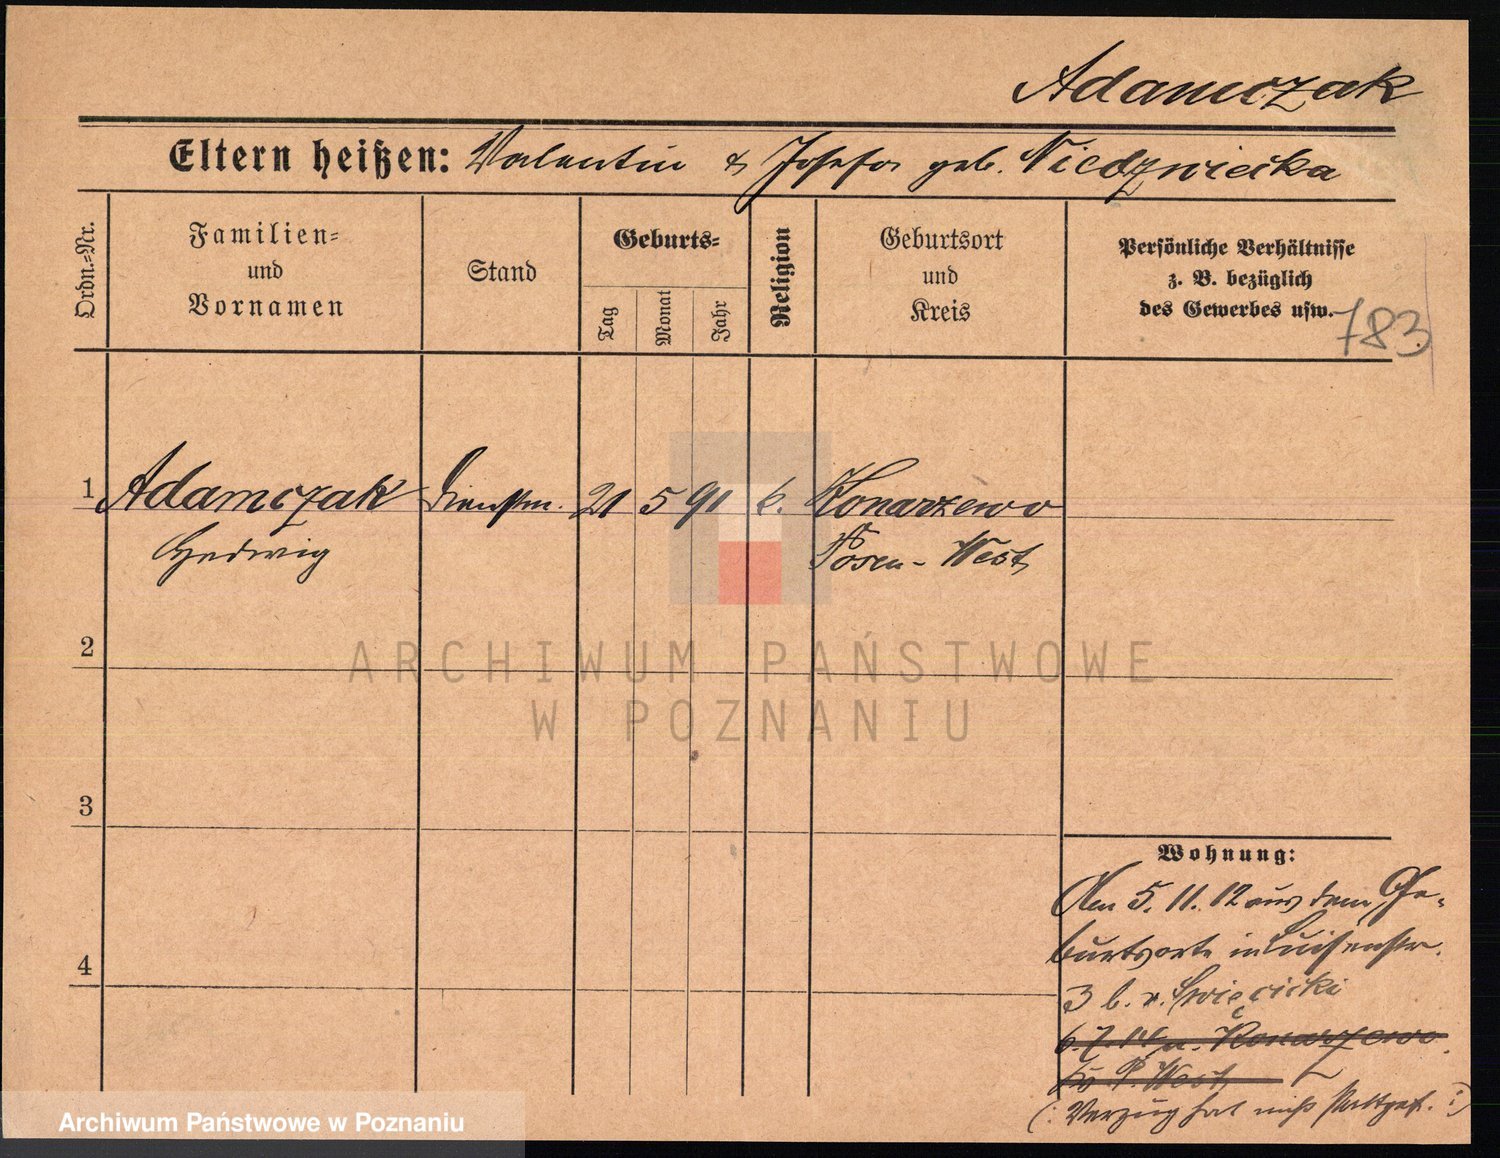 Adamczak
Eltern heißen: Valentin & Josefa geb. Niedzwiecka
Ordn.=Nr.
Familien=
und
Vornamen
Stand
Geburts=
Tag
Monat
Jahr
Religion
Geburtsort
und
Kreis
Persönliche Verhältnisse
z. B. bezüglich
des Gewerbes usw.
783
1 Adamczak Dienstm. 21 5 91 k. Konarzewo
Hedwig Posen-West
2
3
4
Wohnung:
Am 5. 11. 12 aus dem Ge-
burtsorte in Luisenstr.
3 b. v. Święcicki
6. 7. n. Konarzewo
Kr P. West
(: Verzug hat nicht stattgef. :)
ARCHIWUM PAŃSTWOWE
W POZNANIU
Archiwum Państwowe w Poznaniu